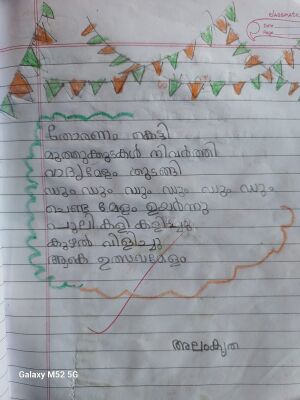 classmate
Date
Page
തോരണം കെട്ടി
മുത്തുക്കുടകൾ നിവർത്തി
വാദ്യമേളം തുടങ്ങി
ഡും ഡും ഡും ഡും ഡും ഡും
ചെണ്ട മേളം ഉയർന്നു
പുലികളി കളിച്ചു
കുഴൽ വിളിച്ചു
ആകെ ഉത്സവമേളം
അലംകൃത
Galaxy M52 5G